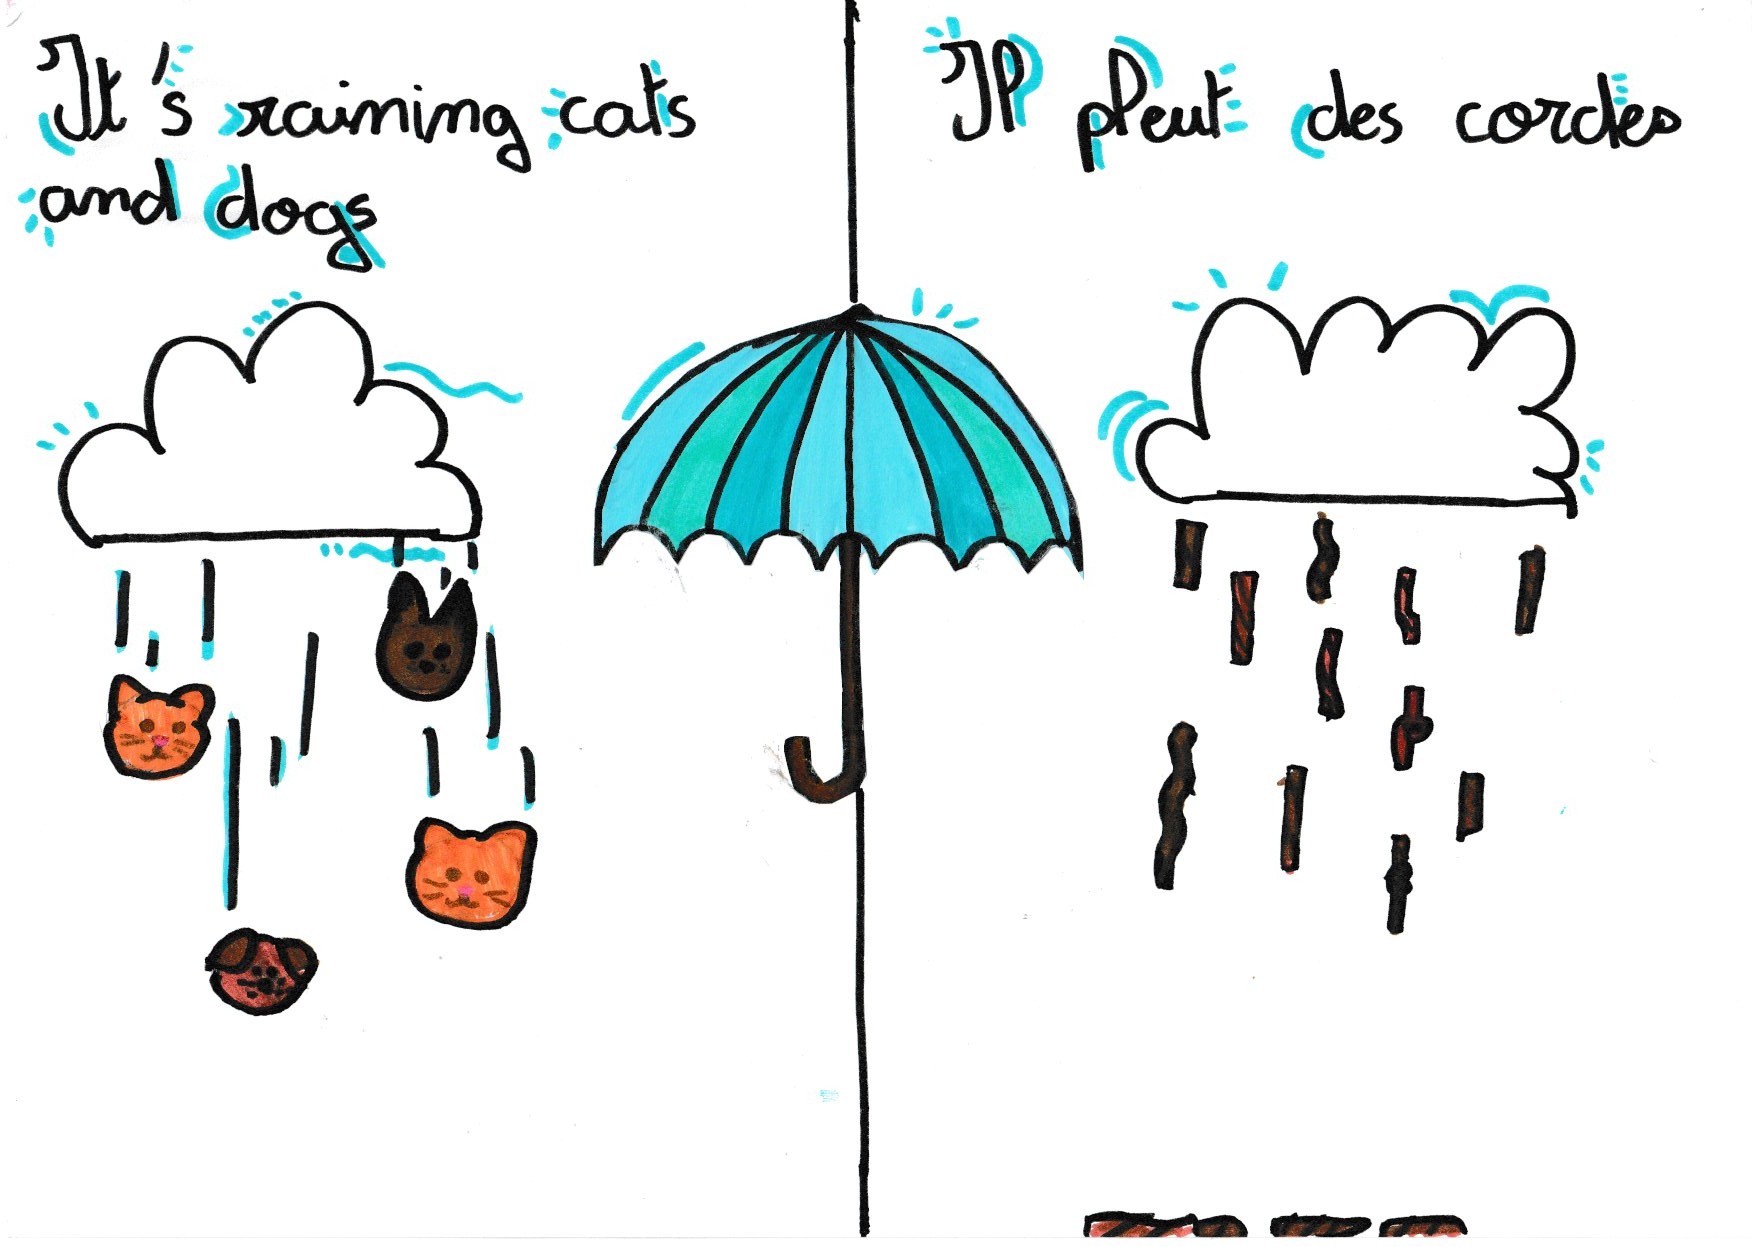 It's raining cats
and dogs
Il pleut des cordes